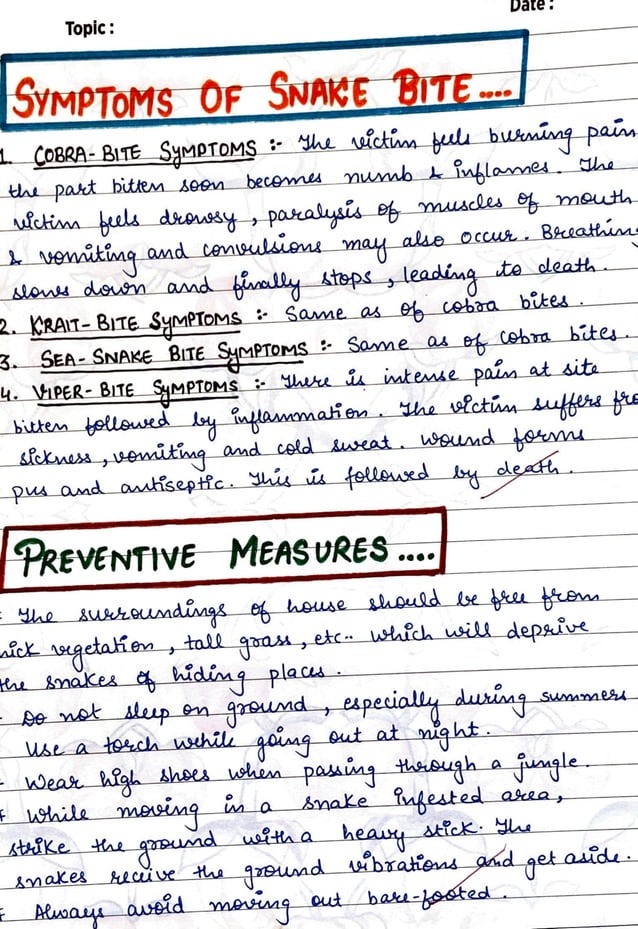 Date :
Topic :
SYMPTOMS OF SNAKE BITE....
1. COBRA-BITE SYMPTOMS :- The victim feels burning pain
the part bitten soon becomes numb & inflames. The
victim feels drowsy, paralysis of muscles of mouth
& vomiting and convulsions may also occur. Breathin
slows down and finally stops, leading to death.
2. KRAIT-BITE SYMPTOMS :- Same as of cobra bites.
3. SEA-SNAKE BITE SYMPTOMS :- Same as of cobra bites.
4. VIPER-BITE SYMPTOMS :- There is intense pain at site
bitten followed by inflammation. The victim suffers fro
sickness, vomiting and cold sweat. wound forms
pus and antiseptic. This is followed by death.
PREVENTIVE MEASURES....
The surroundings of house should be free from
hick vegetation, tall grass, etc.. which will deprive
the snakes of hiding places.
- Do not sleep on ground, especially during summers
Use a torch while going out at night.
- Wear high shoes when passing through a jungle.
While moving in a snake infested area,
strike the ground with a heavy stick. The
snakes receive the ground vibrations and get aside.
Always avoid moving out bare-footed.